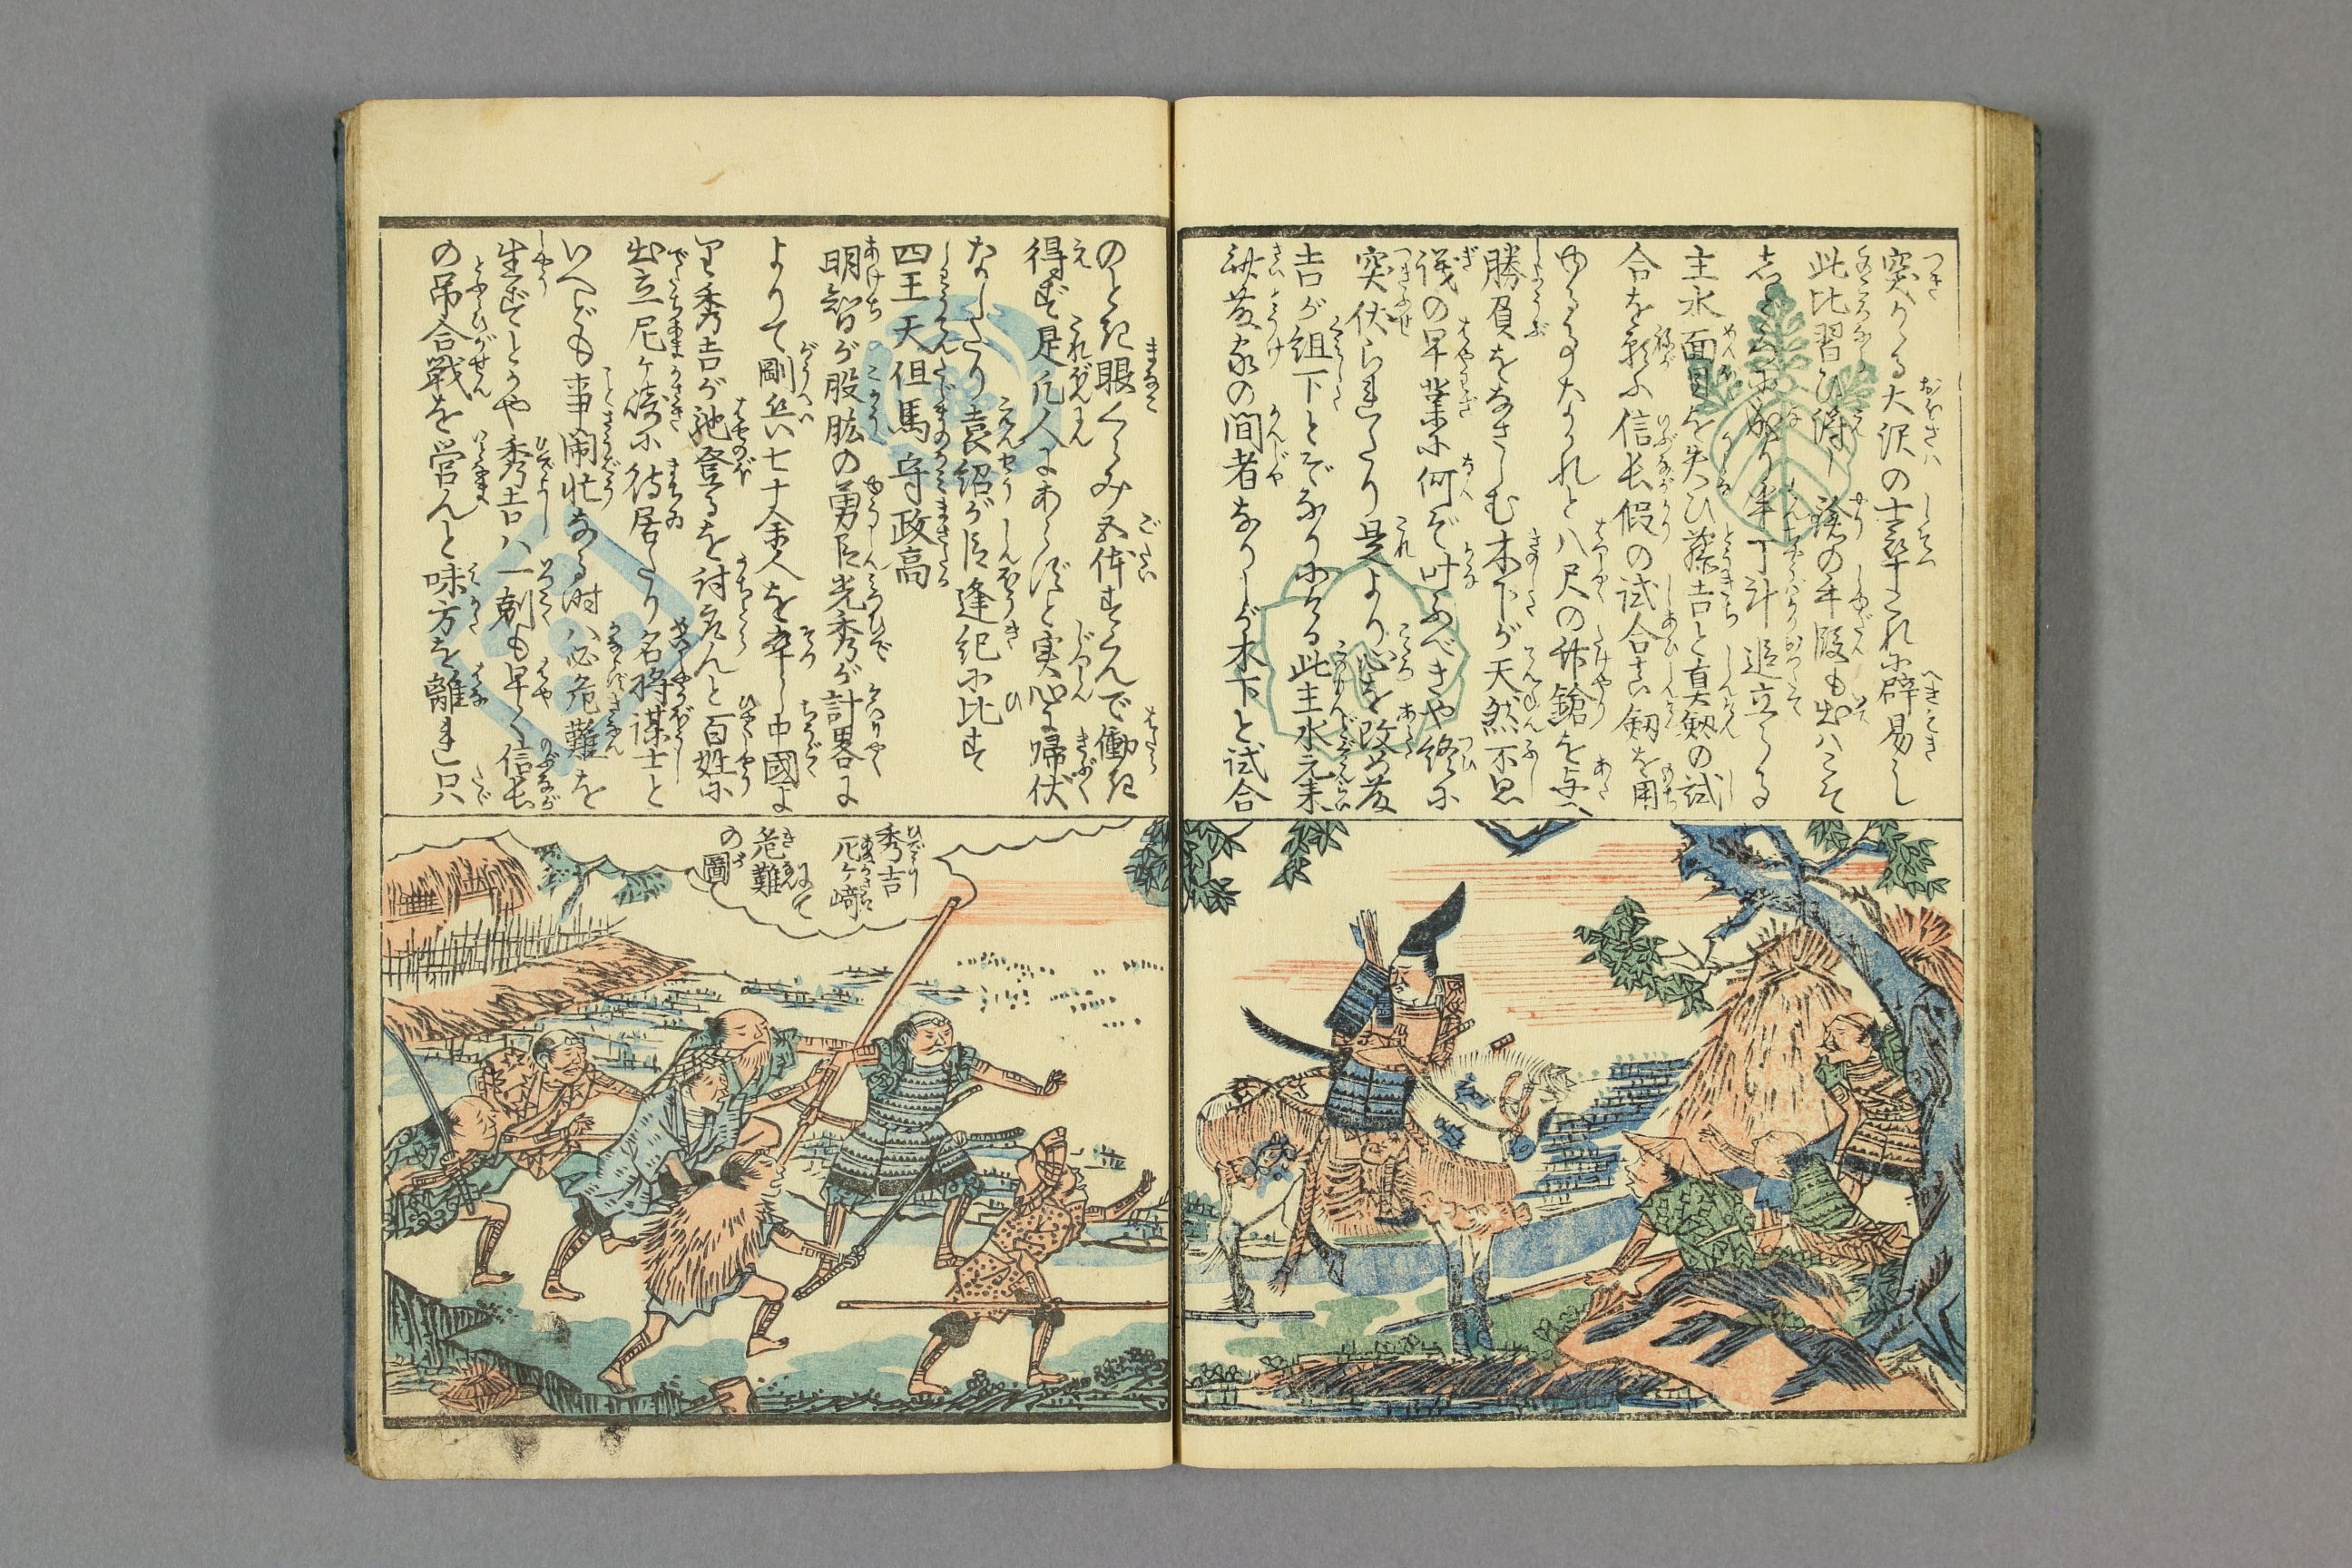 突かくる大沢の士卒これに辟易し
此比習ひ得し鎗の手段も出バこそ
主水面目を失ひ藤吉と真剱の試
合を願ふ信長假の試合に真剱を用
ゆるものなかれと八尺の竹鎗を与へ
勝負をなさしむ木下が天然不思
議の早業に何ぞ叶ふべきや終に
突伏られたり是より心を改め
吉が組下とぞなりにける此主水元来
斎藤家の間者なりしが木下と試合
のとき眼くらみ五体すくんで働き
得ず是凡人にあらずと実心に帰伏
なしたり袁紹が臣逢紀に比す
四王天但馬守政高
明智が股肱の勇臣光秀が計畧に
よりて剛兵七十余人を率し中國よ
り秀吉が馳登るを討取んと百姓に
出立尼ヶ﨑に待居たり名将謀士と
いへども事閙忙なる時ハ必危難を
生ずとかや秀吉ハ一刻も早く信長
の吊合戰を営んと味方を離れ只
秀吉
尼ヶ﨑
にて
危難
の圖